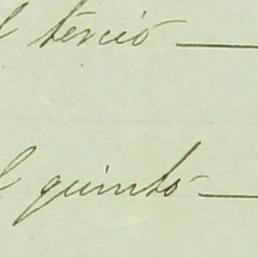 l tercio
l quinto